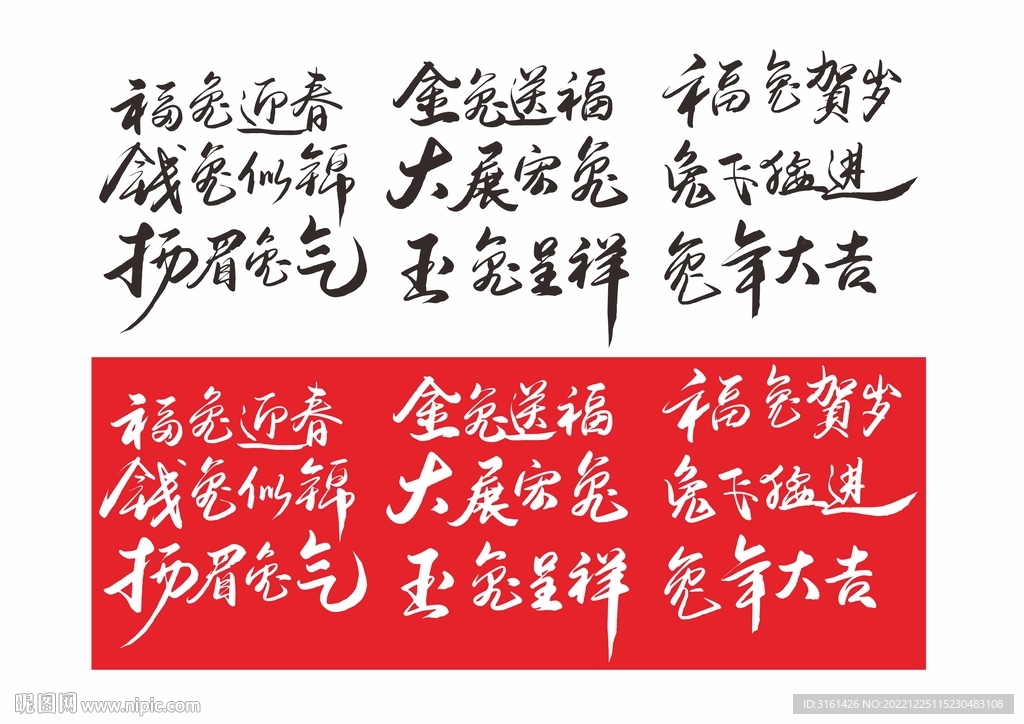 福兔迎春
钱兔似锦
扬眉兔气
金兔送福
大展宏兔
玉兔呈祥
福兔贺岁
兔飞猛进
兔年大吉
福兔迎春
钱兔似锦
扬眉兔气
金兔送福
大展宏兔
玉兔呈祥
福兔贺岁
兔飞猛进
兔年大吉
昵图网 www.nipic.com
ID:3161426 NO:20221225115230483108